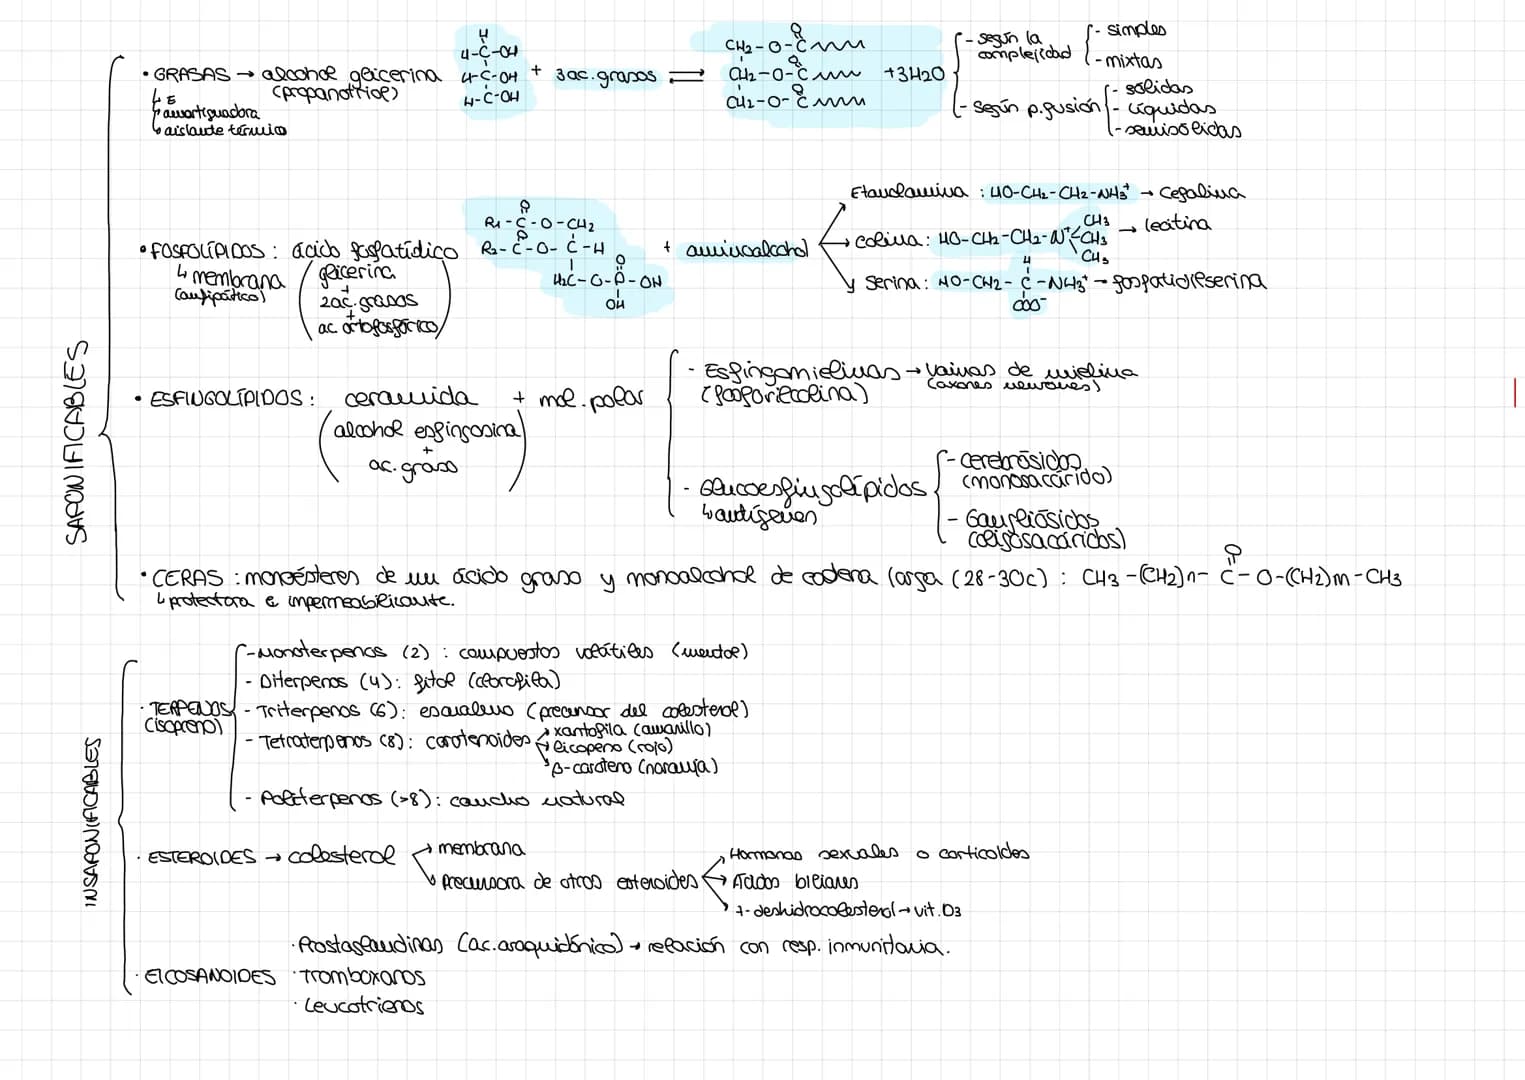 SAPONIFICABLES
• GRASAS → alcohol glicerina (propanotriol)
↳ E
↳ amortiguadora
↳ aislante térmico
H
H-C-OH
H-C-OH
H-C-OH
+ 3 ac. grasos ⇌
O
CH2-O-C
O
CH2-O-C
O
CH2-O-C
+3H2O
- según la complejidad
- simples
- mixtas
- según p. fusión
- sólidas
- líquidas
- semisólidas
• FOSFOLÍPIDOS : ácido fosfatídico
↳ membrana
(anfipático)
(glicerina
+
2 ac. grasos
+
ac ortofosfórico)
O
R1-C-O-CH2
O
R2-C-O-C-H
O
H2C-O-P-OH
OH
+ aminoalcohol
Etanolamina : HO-CH2-CH2-NH3+ → cefalina
→ colina : HO-CH2-CH2-N+ CH3 CH3 CH3 → lecitina
Serina : HO-CH2-C-NH3+ → fosfatidilserina
H
COO-
• ESFINGOLÍPIDOS : ceramida + mol. polar
(alcohol esfingosina
+
ac. graso)
- Esfingomielinas → vainas de mielina
(fosforilcolina) (axones neuronas)
- Glucoesfingolípidos
↳ antígenos
- cerebrósidos
(monosacárido)
- Gangliósidos
(oligosacáridos)
• CERAS : monoésteres de un ácido graso y monoalcohol de cadena larga (28-30c) : CH3-(CH2)n-C-O-(CH2)m-CH3
O
↳ protectora e impermeabilizante.
INSAPONIFICABLES
· TERPENOS
(isopreno)
- Monoterpenos (2) : compuestos volátiles (mentol)
- Diterpenos (4) : fitol (clorofila)
- Triterpenos (6) : escualeno (precursor del colesterol)
- Tetraterpenos (8) : carotenoides
xantofila (amarillo)
licopeno (rojo)
β-caroteno (naranja)
- Politerpenos (>8) : caucho natural
· ESTEROIDES → colesterol
→ membrana
↳ precursora de otros esteroides
Hormonas sexuales o corticoides
→ Ácidos biliares
7-deshidrocolesterol → vit. D3
· EICOSANOIDES
· Prostaglandinas (ac. araquidónico) → relación con resp. inmunitaria.
· Tromboxanos
· Leucotrienos